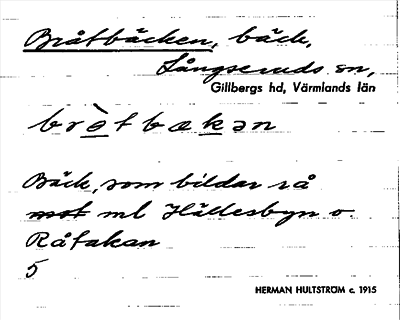 Bråtbäcken, bäck,
Långseruds sn,
Gillbergs hd, Värmlands län
bròtbækən
Bäck, som bildar rå
mot ml Hällesbyn o.
Råtakan
5
HERMAN HULTSTRÖM c. 1915